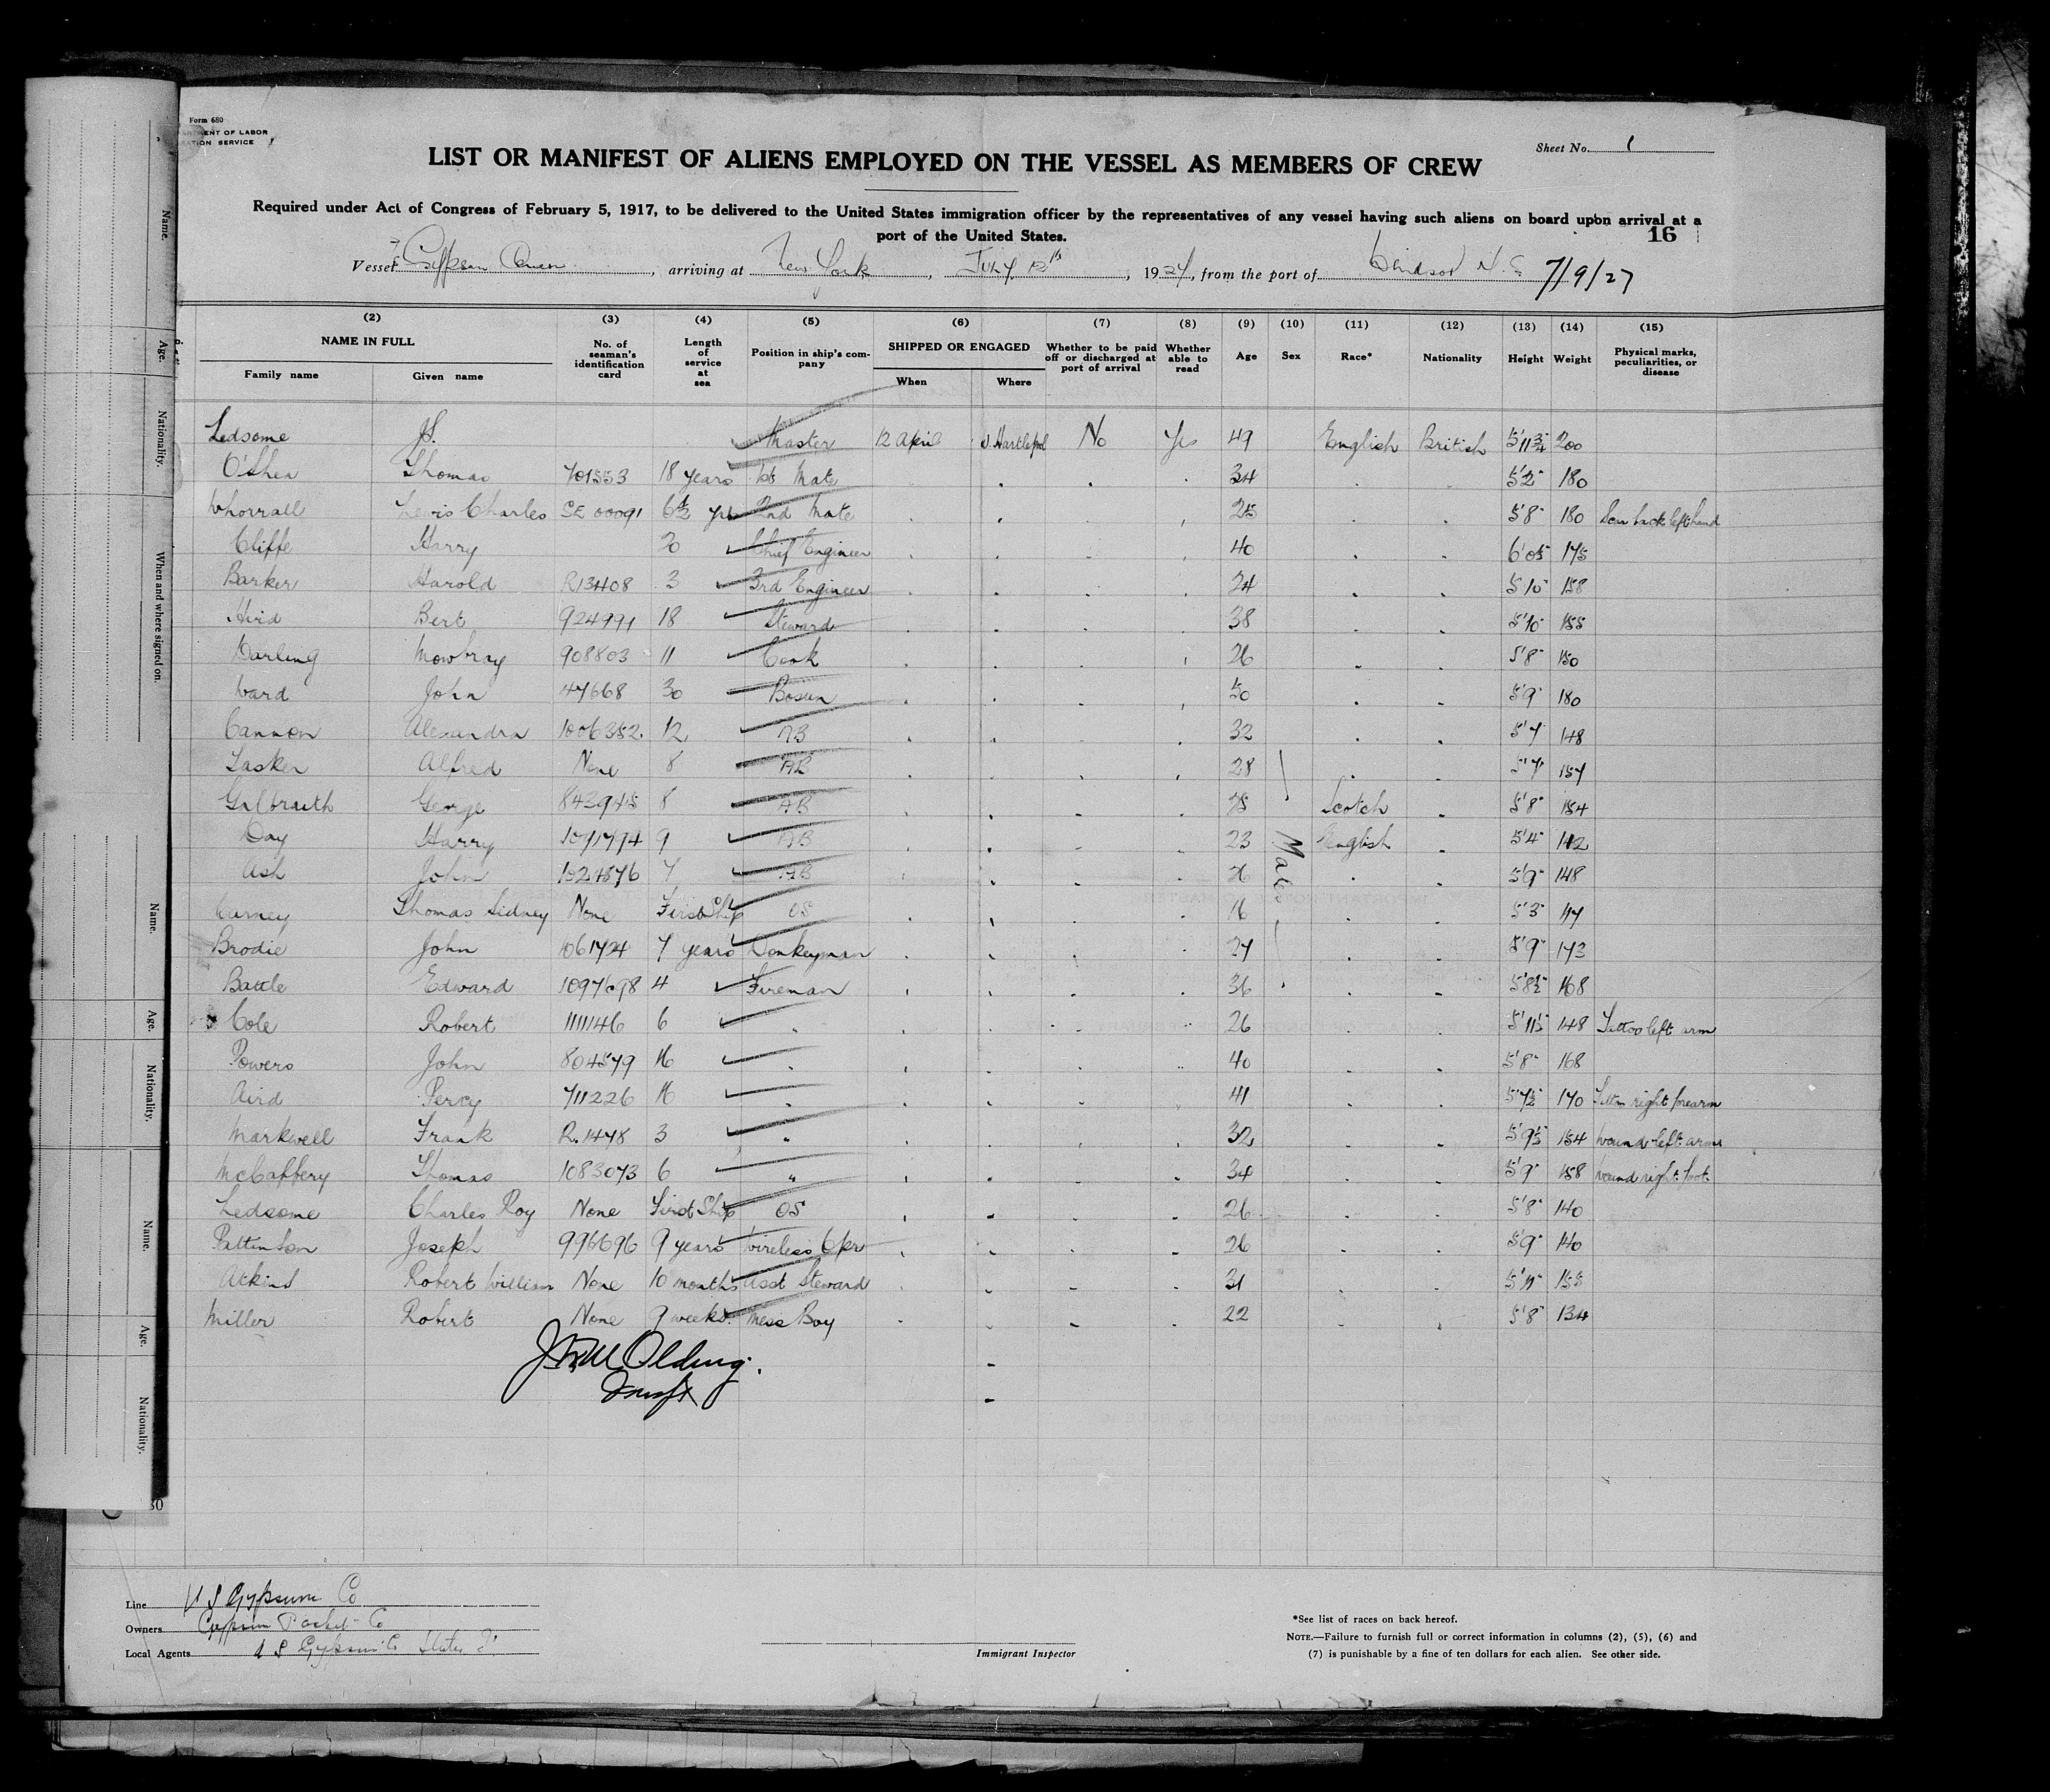 Form 680
LABOR
SERVICE
Sheet No. 1
LIST OR MANIFEST OF ALIENS EMPLOYED ON THE VESSEL AS MEMBERS OF CREW
Required under Act of Congress of February 5, 1917, to be delivered to the United States immigration officer by the representatives of any vessel having such aliens on board upon arrival at a
port of the United States.
16
Vessel Gypsum Queen, arriving at New York, July 12th, 1927, from the port of Windsor N.S. 7/9/27
(2) (3) (4) (5) (6) (7) (8) (9) (10) (11) (12) (13) (14) (15)
NAME IN FULL No. of seaman's identification card Length of service at sea Position in ship's company SHIPPED OR ENGAGED Whether to be paid off or discharged at port of arrival Whether able to read Age Sex Race* Nationality Height Weight Physical marks, peculiarities, or disease
Family name Given name When Where
Ledsome JS. Master 12 April W. Hartlepool No Yes 49 English British 5'11¾ 200
O'Shea Thomas 701553 18 years 1st Mate 34 5'2" 180
Whorrall Lewis Charles 6½ yrs 2nd Mate 25 5'8" 180 Scar back left hand
Cliffe Harry 20 Chief Engineer 40 175
Barker Harold R13408 3 3rd Engineer 24 5'10" 158
Hird Bert 924991 18 Steward 38 5'10" 155
Darling Mowbray 908803 11 Cook 26 5'8" 150
Ward John 47668 30 Bosun 50 5'9" 180
Cannon Alexandra 1006352 12 AB 32 5'7" 148
Lasker Alfred None 8 AB 28 5'7" 157
Galbraith George 8 AB Scotch 5'8" 154
Day Harry 1071774 9 AB 23 English 5'4" 142
Ash John 7 AB 26 5'9" 148
Male
Thomas Sidney None First Ship OS 16 5'3"
Brodie John 1061724 7 years Donkeyman 27 5'9" 173
Battle Edward 1097698 4 Fireman 36 5'8½ 168
Cole Robert 1111146 6 " 26 148 Tattoo left arm
Powers John 804579 16 " 40 5'8" 168
Aird Percy 711226 16 " 41 5'7½ 170 Tattoo right forearm
Markwell Frank R.1478 3 " 32 154 Wound left arm
McCaffery Thomas 1083073 6 " 34 5'9" 158 Wound right foot
Ledsome Charles Roy None First Ship OS 26 5'8" 140
Pattinson Joseph 996696 9 years Wireless Opr 26 5'9" 140
Atkins Robert William None 10 months Asst Steward 31 155
Miller Robert None 9 weeks Mess Boy 22 5'8" 134
Olding.
Insp
Line U S Gypsum Co
Owners Gypsum Packet Co
Local Agents U S Gypsum Co
Immigrant Inspector
*See list of races on back hereof.
NOTE.—Failure to furnish full or correct information in columns (2), (5), (6) and
(7) is punishable by a fine of ten dollars for each alien. See other side.
Name.
Age.
Nationality.
When and where signed on.
Name.
Age.
Nationality.
Name.
Age.
Nationality.
30